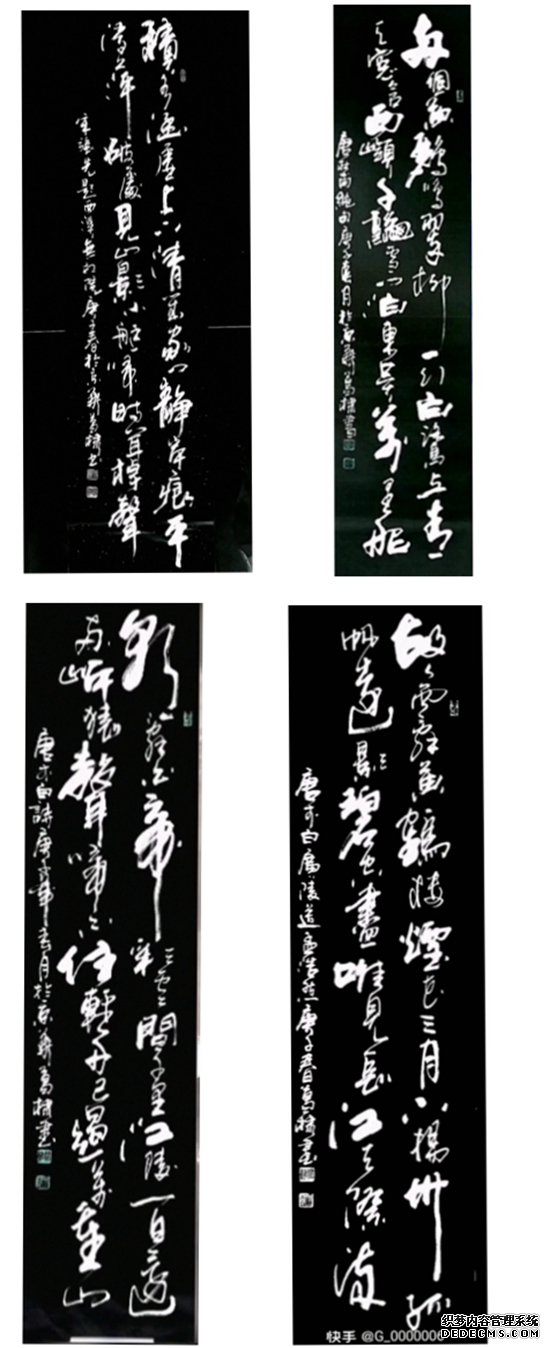 積水涵虛上下清幾家門靜岸痕平
浮萍破處見山影小艇歸時聞棹聲
宋張先題西溪無相院庚子春於京華書
兩個黃鸝鳴翠柳一行白鷺上青
天窗含西嶺千秋雪門泊東吳萬里船
唐杜甫絕句庚子春月於京華書
朝辭白帝彩雲間千里江陵一日還
兩岸猿聲啼不住輕舟已過萬重山
唐李白詩庚子年春月於京華書
故人西辭黃鶴樓煙花三月下揚州孤
帆遠影碧空盡唯見長江天際流
唐李白廣陵送孟浩然庚子春書
快手 @G_0000000
织梦内容管理系统
DEDECMS.COM